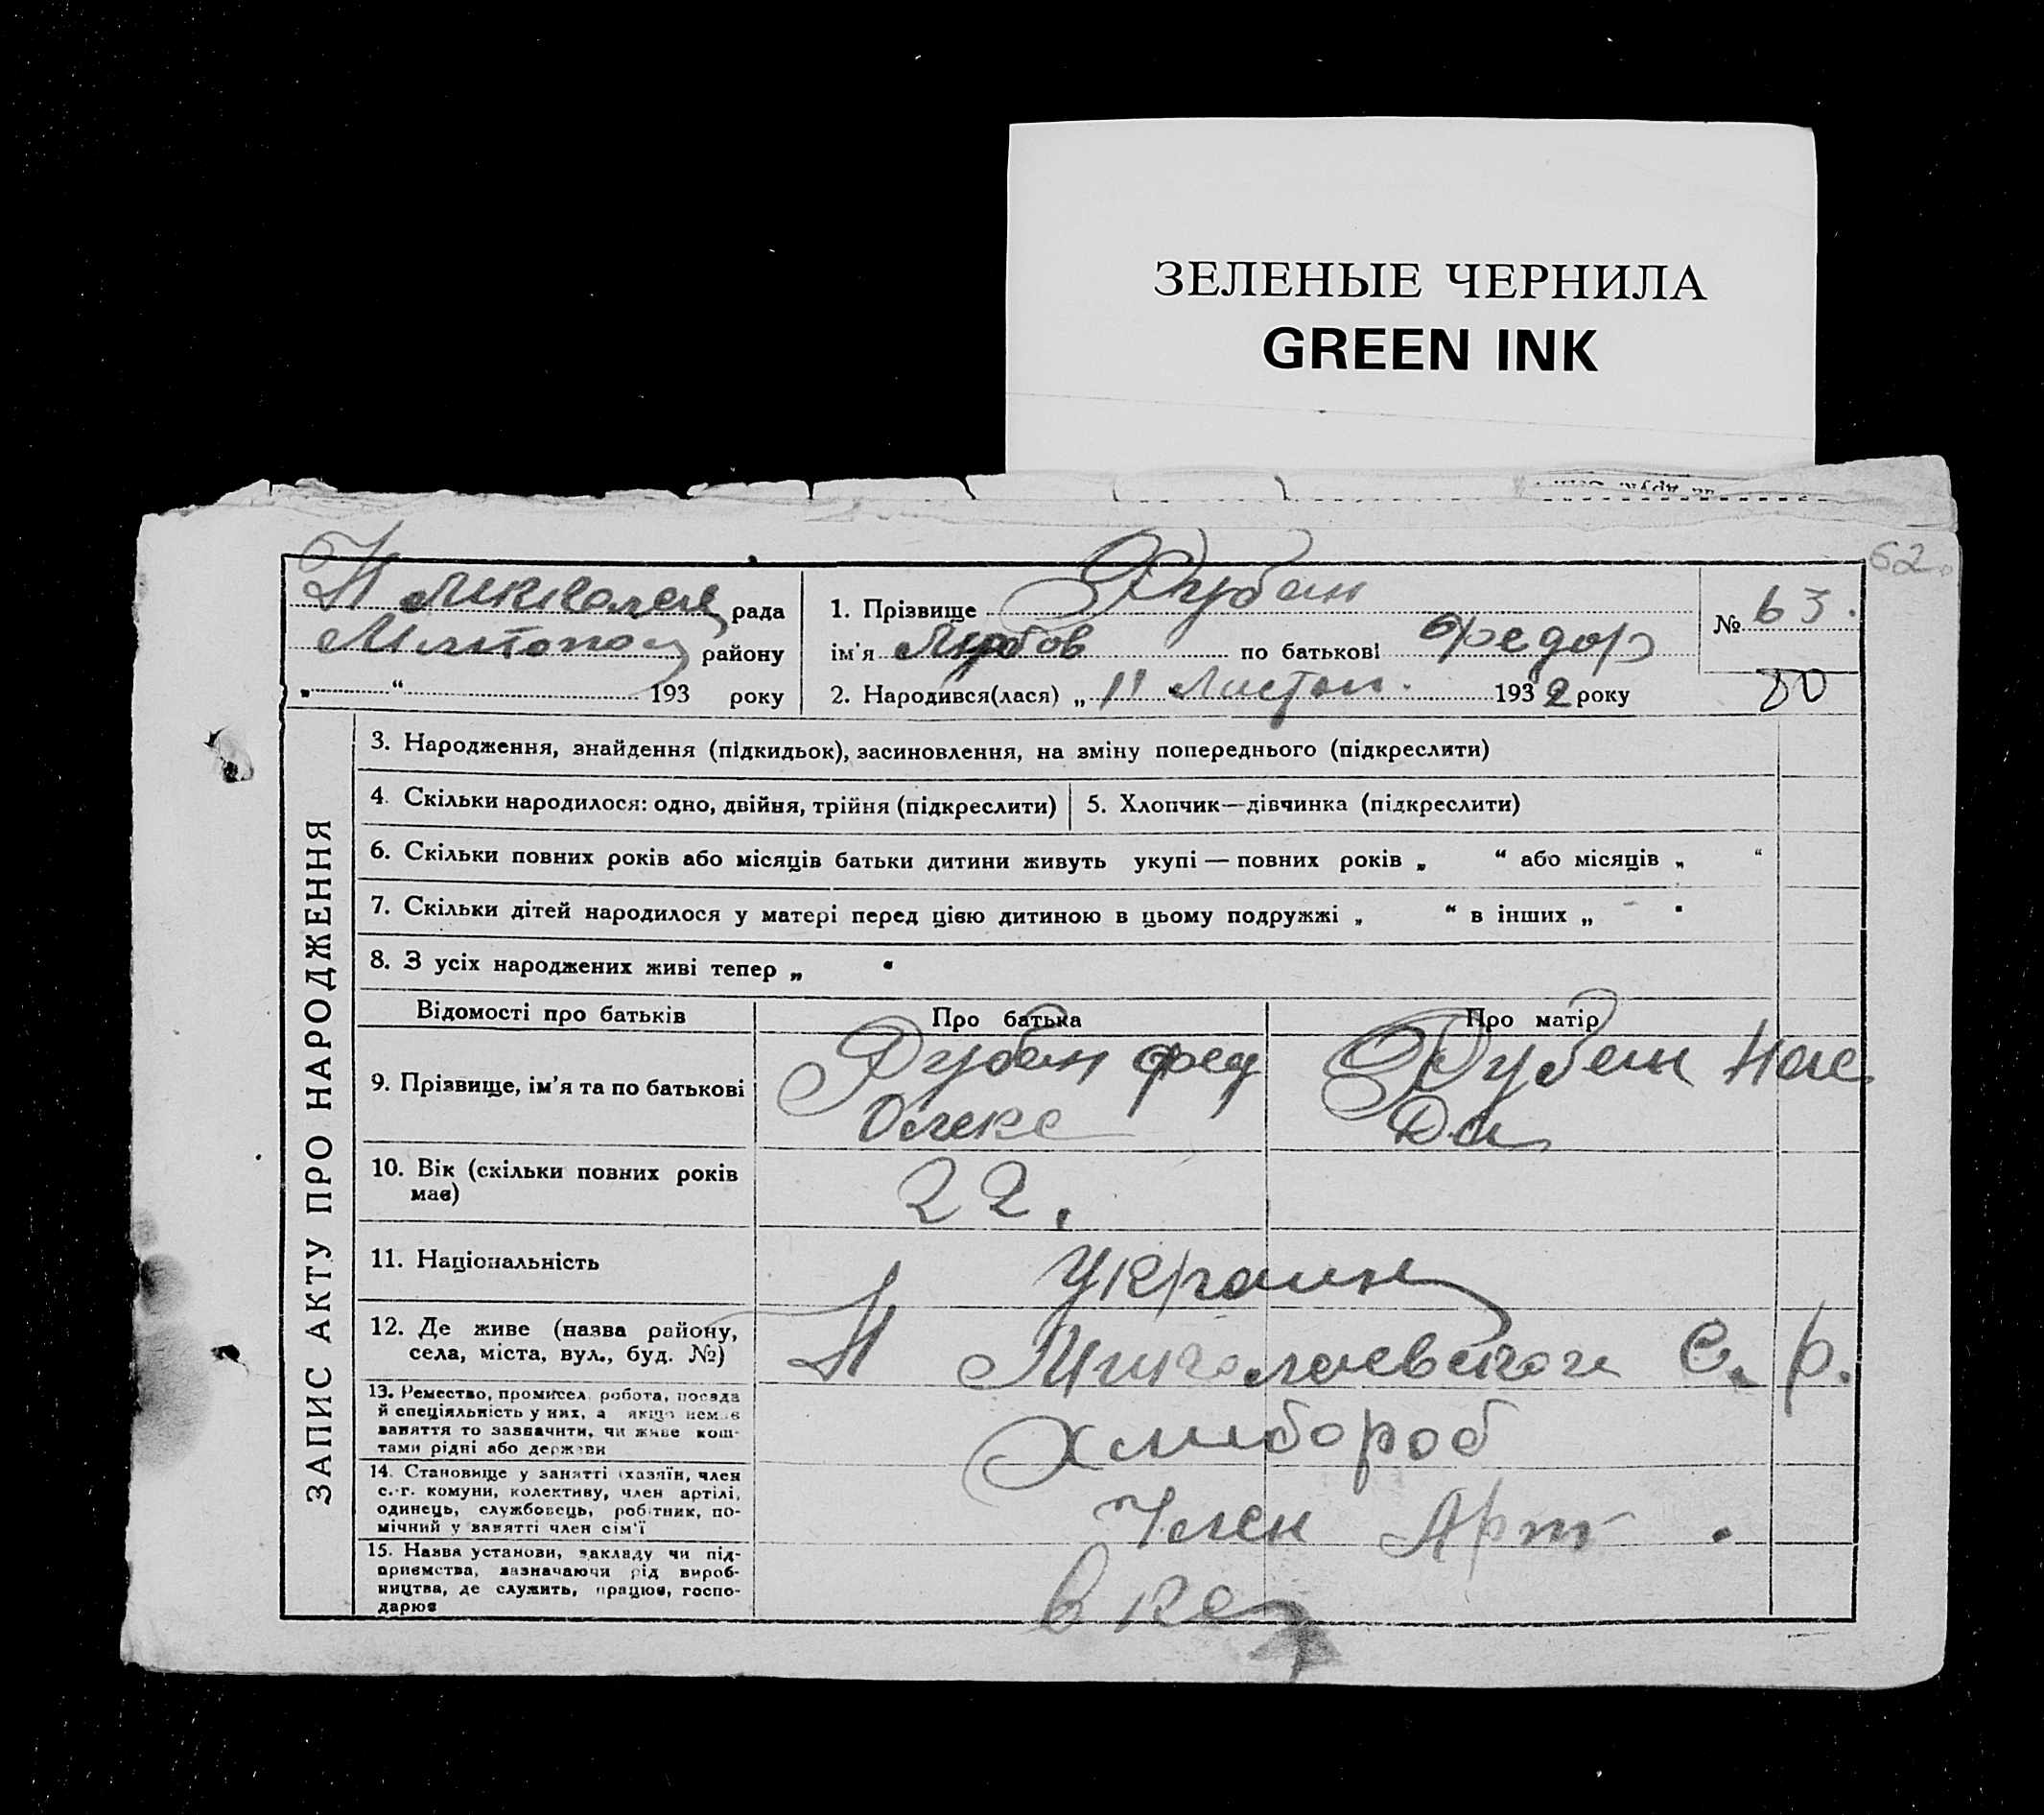 ЗЕЛЕНЫЕ ЧЕРНИЛА
GREEN INK
62.
рада
району
„ “ 193 року
1. Прізвище Рубан
ім'я Любов по батькові Федор
2. Народився(лася) „ 11 Листоп. 1932 року
№ 63.
80
ЗАПИС АКТУ ПРО НАРОДЖЕННЯ
3. Народження, знайдення (підкидьок), засиновлення, на зміну попереднього (підкреслити)
4. Скільки народилося: одно, двійня, трійня (підкреслити)
5. Хлопчик—дівчинка (підкреслити)
6. Скільки повних років або місяців батьки дитини живуть укупі — повних років „ “ або місяців „ “
7. Скільки дітей народилося у матері перед цією дитиною в цьому подружжі „ “ в інших „ “
8. З усіх народжених живі тепер „ “
Відомості про батьків Про батька Про матір
9. Прізвище, ім'я та по батькові
Рубан Фед
Олекс
Рубан Нас
Да
10. Вік (скільки повних років
має)
22.
11. Національність
Україн
12. Де живе (назва району,
села, міста, вул., буд. №)
Н Миколаєвского С. р.
13. Ремество, промисел, робота, посада
й спеціяльність у них, а якщо немає
заняття то зазначити, чи живе кош-
тами рідні або держави
Хлибороб
14. Становище у занятті (хазяїн, член
с.-г. комуни, колективу, член артілі,
одинець, службовець, робітник, по-
мічний у занятті член сім'ї
Член Арт.
15. Назва установи, закладу чи під-
приємства, зазначаючи рід вироб-
ництва, де служить, працює, госпо-
дарює